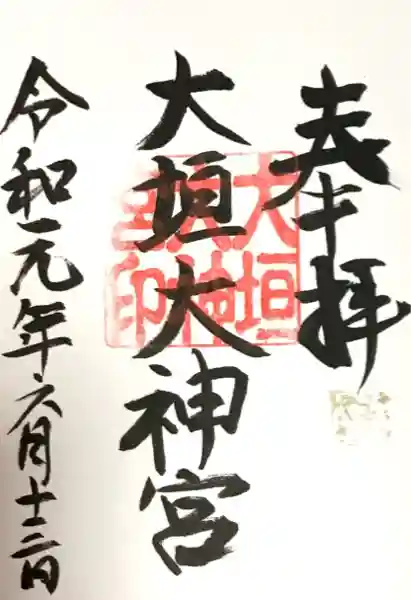 奉拝
大垣大神宮
令和元年六月十三日
大垣
大神
宮印